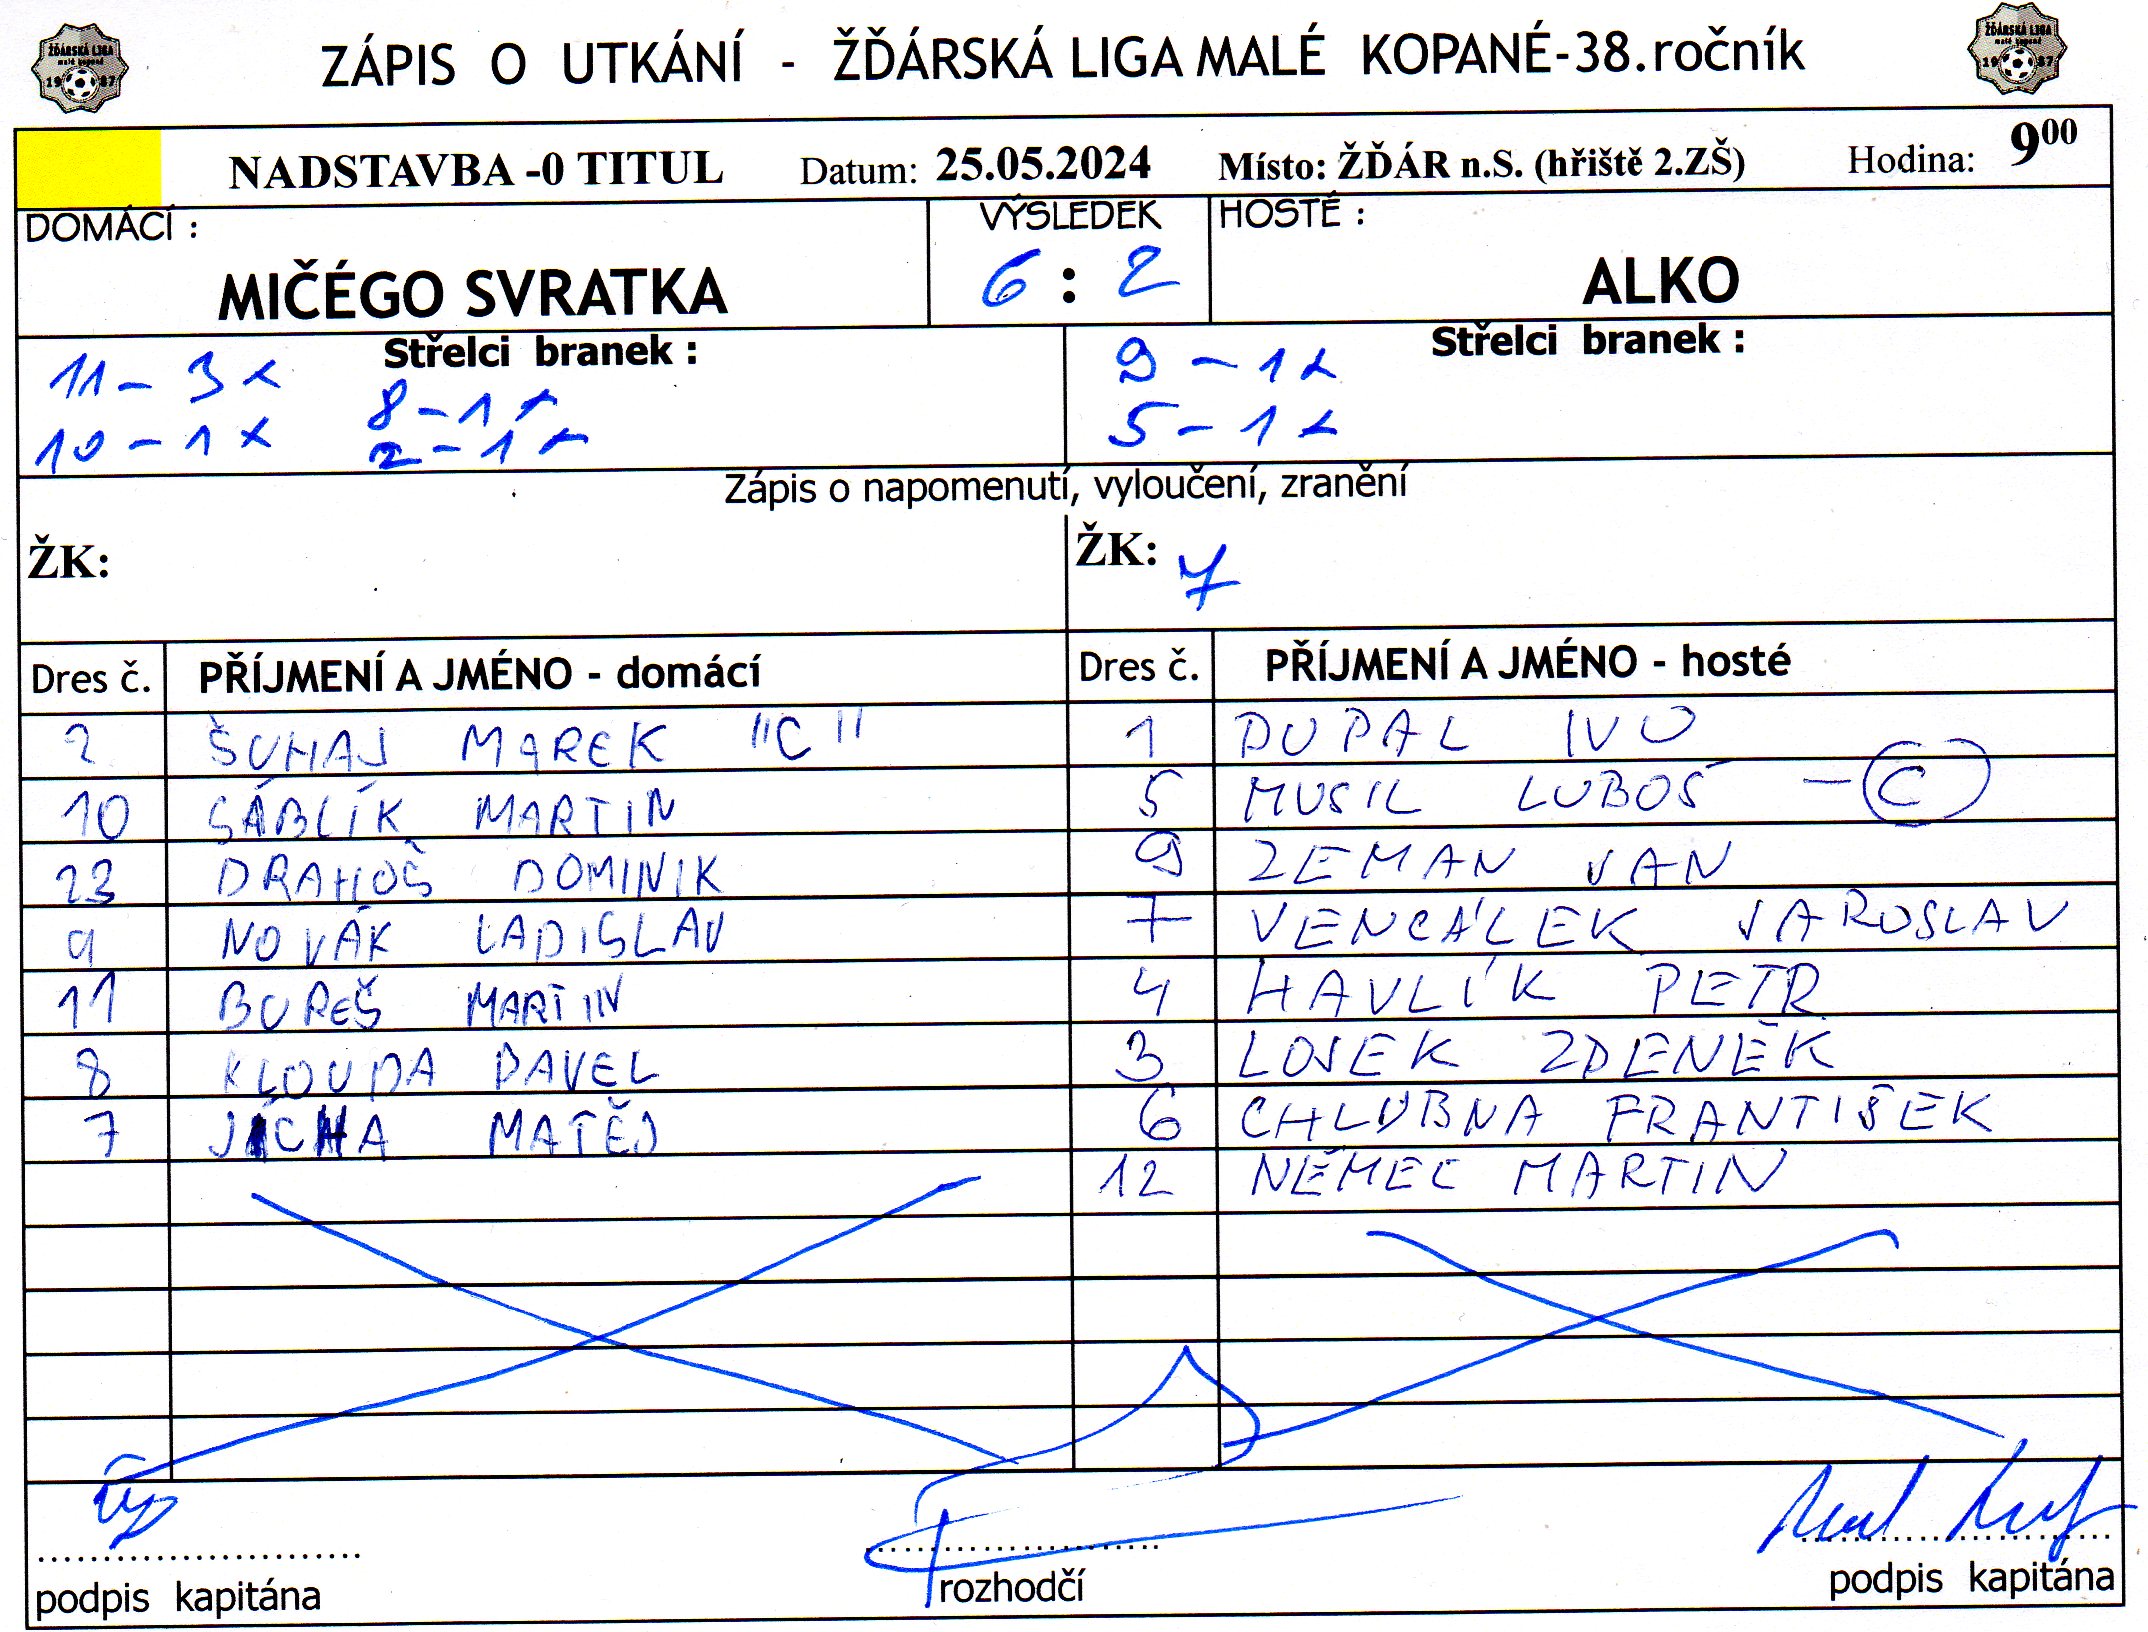 ZÁPIS O UTKÁNÍ - ŽĎÁRSKÁ LIGA MALÉ KOPANÉ-38.ročník
NADSTAVBA -0 TITUL Datum: 25.05.2024 Místo: ŽĎÁR n.S. (hřiště 2.ZŠ) Hodina: 9 00
DOMÁCÍ : VÝSLEDEK HOSTÉ :
MIČÉGO SVRATKA 6 : 2 ALKO
Střelci branek : Střelci branek :
11 - 3x 8 - 1x 9 - 1x
10 - 1x 2 - 1x 5 - 1x
Zápis o napomenutí, vyloučení, zranění
ŽK: ŽK: 7
Dres č. PŘÍJMENÍ A JMÉNO - domácí Dres č. PŘÍJMENÍ A JMÉNO - hosté
2 ŠUHAJ MAREK "C" 1 DUPAL IVO
10 SÁBLÍK MARTIN 5 MUSIL LUBOŠ - C
23 DRAHOŠ DOMINIK 9 ZEMAN JAN
9 NOVÁK LADISLAV 7 VENCÁLEK JAROSLAV
11 BUREŠ MARTIN 4 HAVLÍK PETR
8 KLOUDA PAVEL 3 LOSEK ZDENĚK
7 JÍCHA MATĚJ 6 CHLUBNA FRANTIŠEK
12 NĚMEC MARTIN
podpis kapitána rozhodčí podpis kapitána